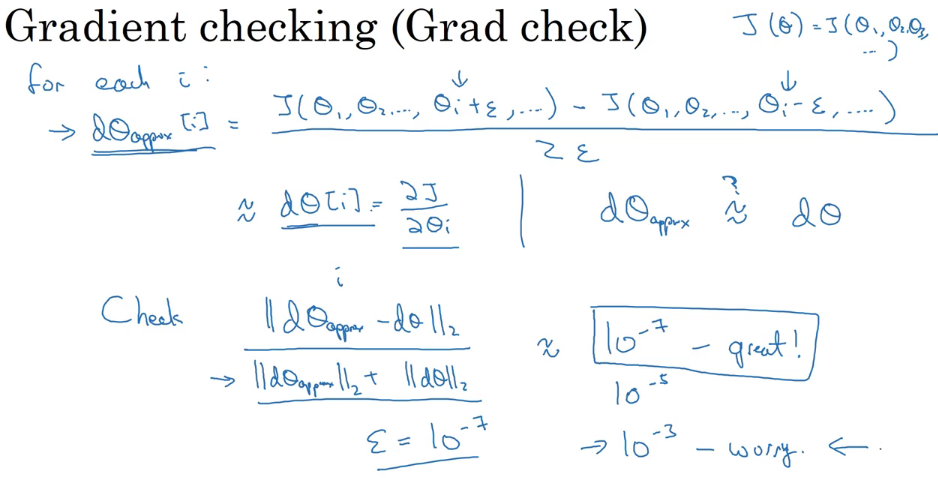 Gradient checking (Grad check)
J(θ) = J(θ₁, θ₂, θ₃, ...)
for each i:
→ dθapprox[i] = J(θ₁, θ₂, ..., θᵢ+ε, ...) - J(θ₁, θ₂, ..., θᵢ-ε, ....) / 2ε
≈ dθ[i] = ∂J/∂θᵢ | dθapprox ≈? dθ
i
Check ||dθapprox - dθ||₂ / → ||dθapprox||₂ + ||dθ||₂ ≈ 10⁻⁷ - great!
10⁻⁵
ε = 10⁻⁷ → 10⁻³ - worry. ←